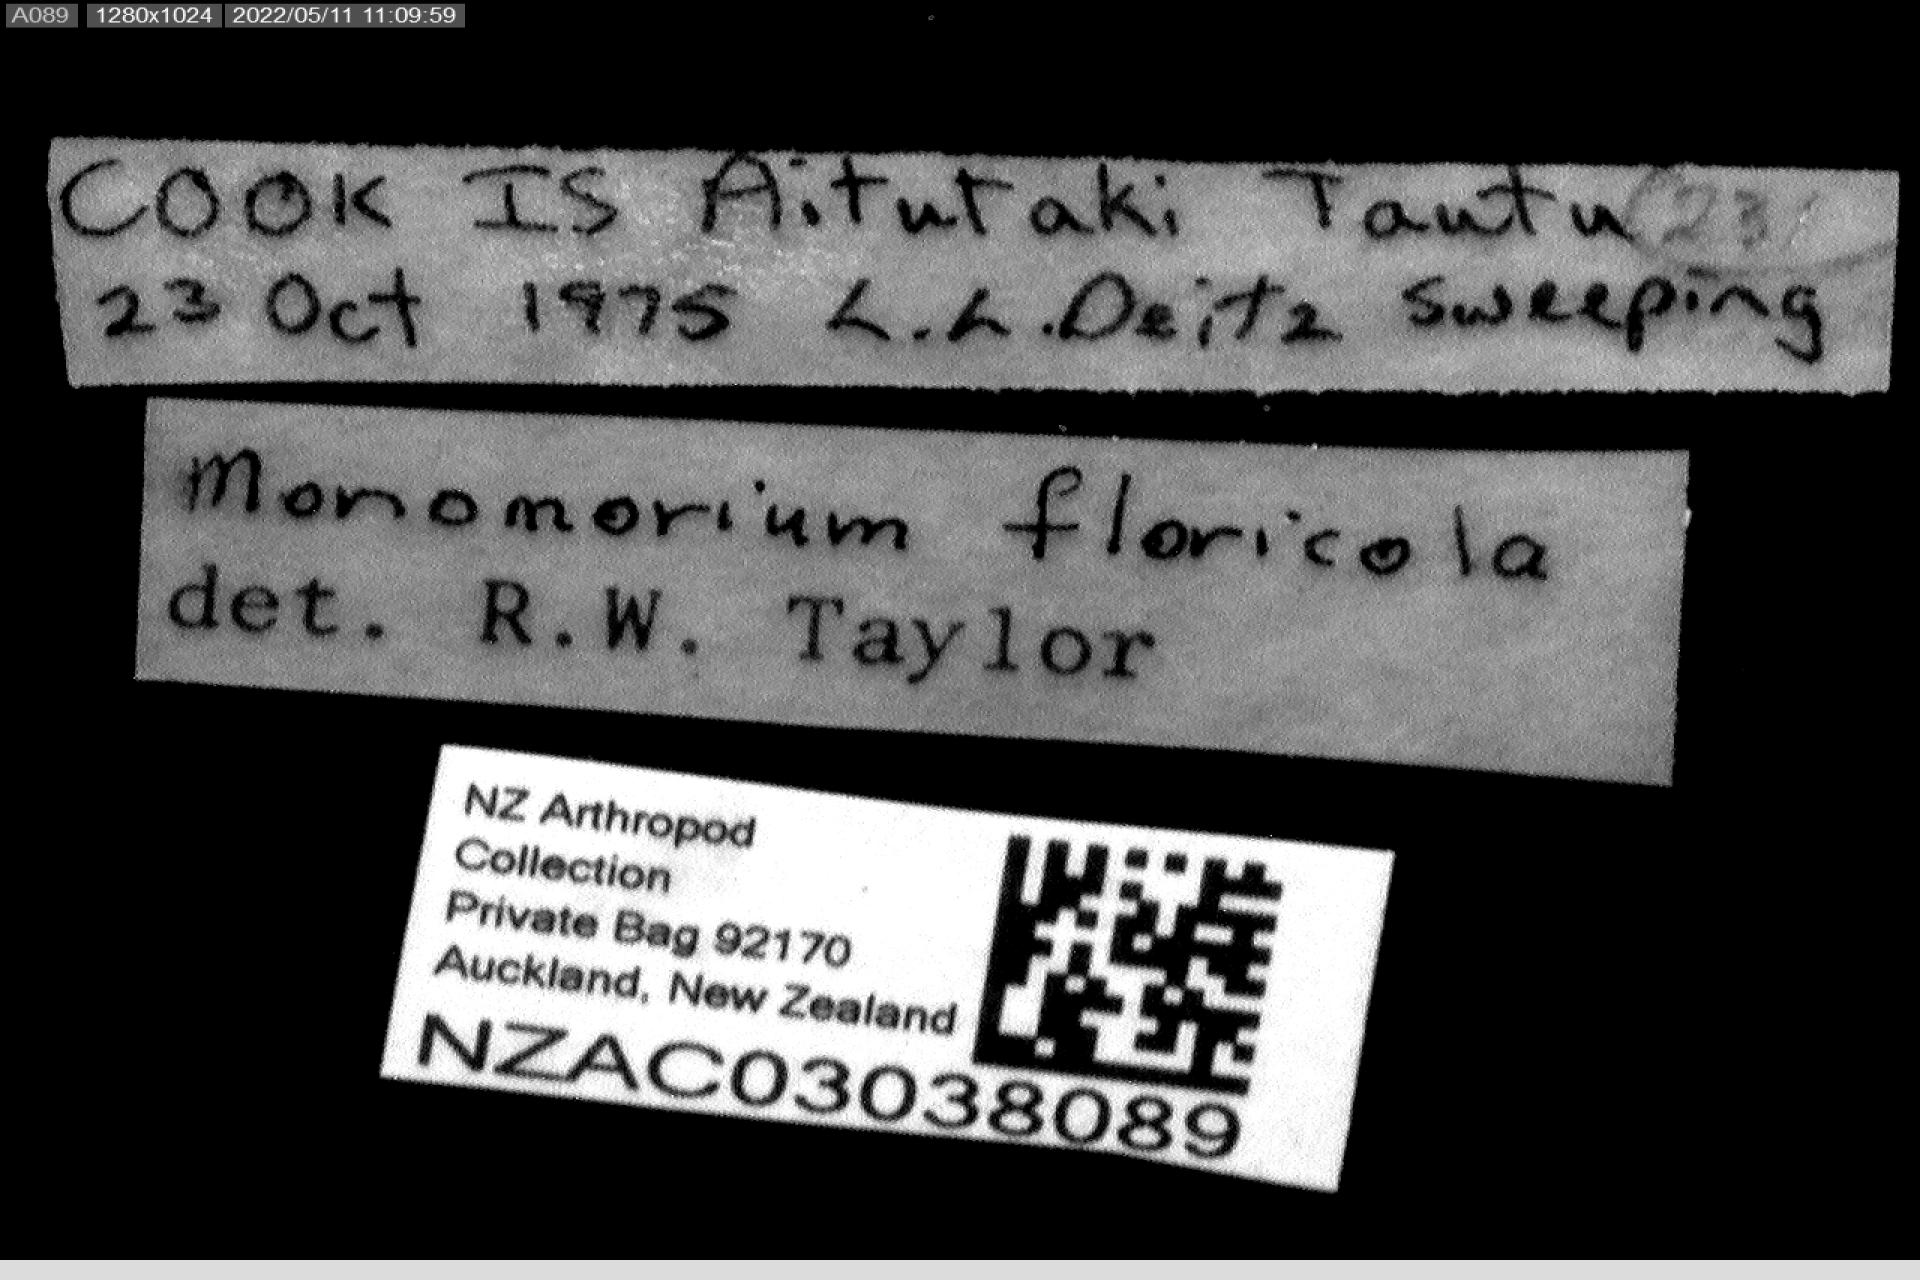 A089 1280x1024 2022/05/11 11:09:59
COOK IS Aitutaki Tautu
23 Oct 1975 L.L.Deitz sweeping
Monomorium floricola
det. R.W. Taylor
NZ Arthropod
Collection
Private Bag 92170
Auckland, New Zealand
NZAC03038089